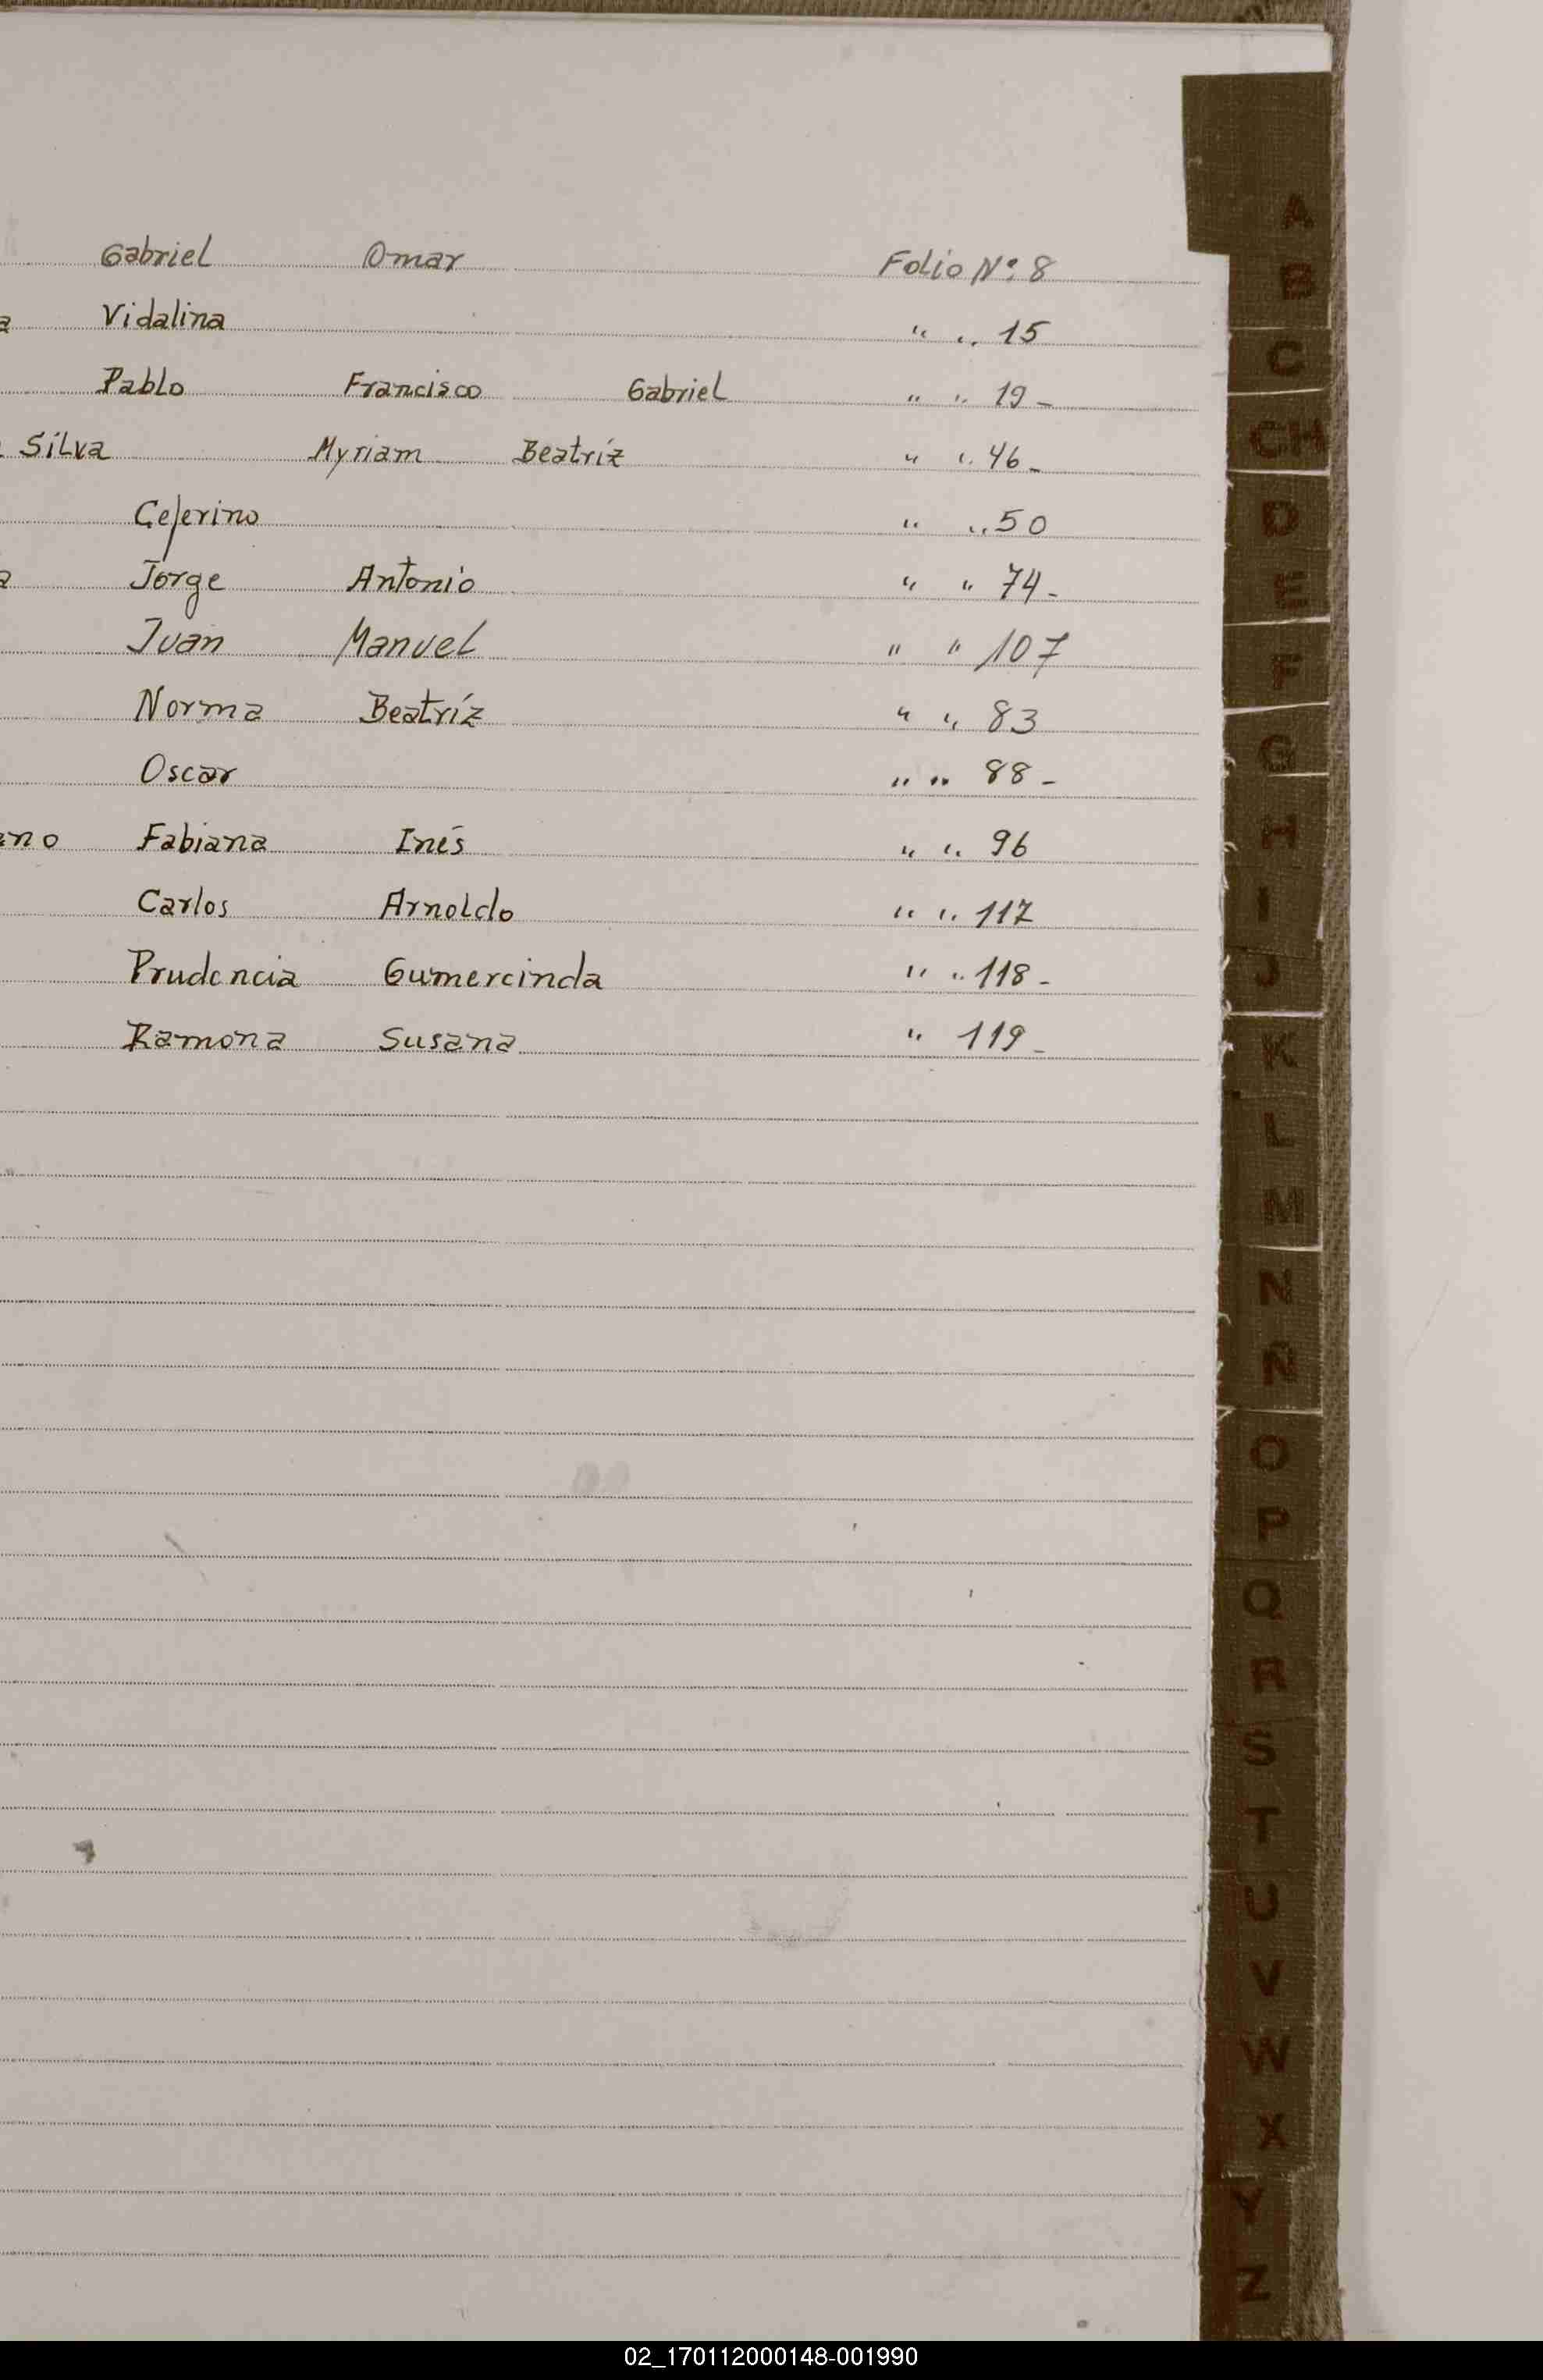 Gabriel Omar Folio Nº 8
a Vidalina " " 15
Pablo Francisco Gabriel " " 19-
Silva Myriam Beatríz " " 46-
Ceferino " " 50
a Jorge Antonio " " 74-
Juan Manuel " " 107
Norma Beatríz " " 83
Oscar " " 88-
no Fabiana Inés " " 96
Carlos Arnoldo " " 117
Prudencia Gumercinda " " 118-
Ramona Susana " 119-
A
B
C
CH
D
E
F
G
H
I
J
K
L
M
N
Ñ
O
P
Q
R
S
T
U
V
W
X
Y
Z
02_170112000148-001990